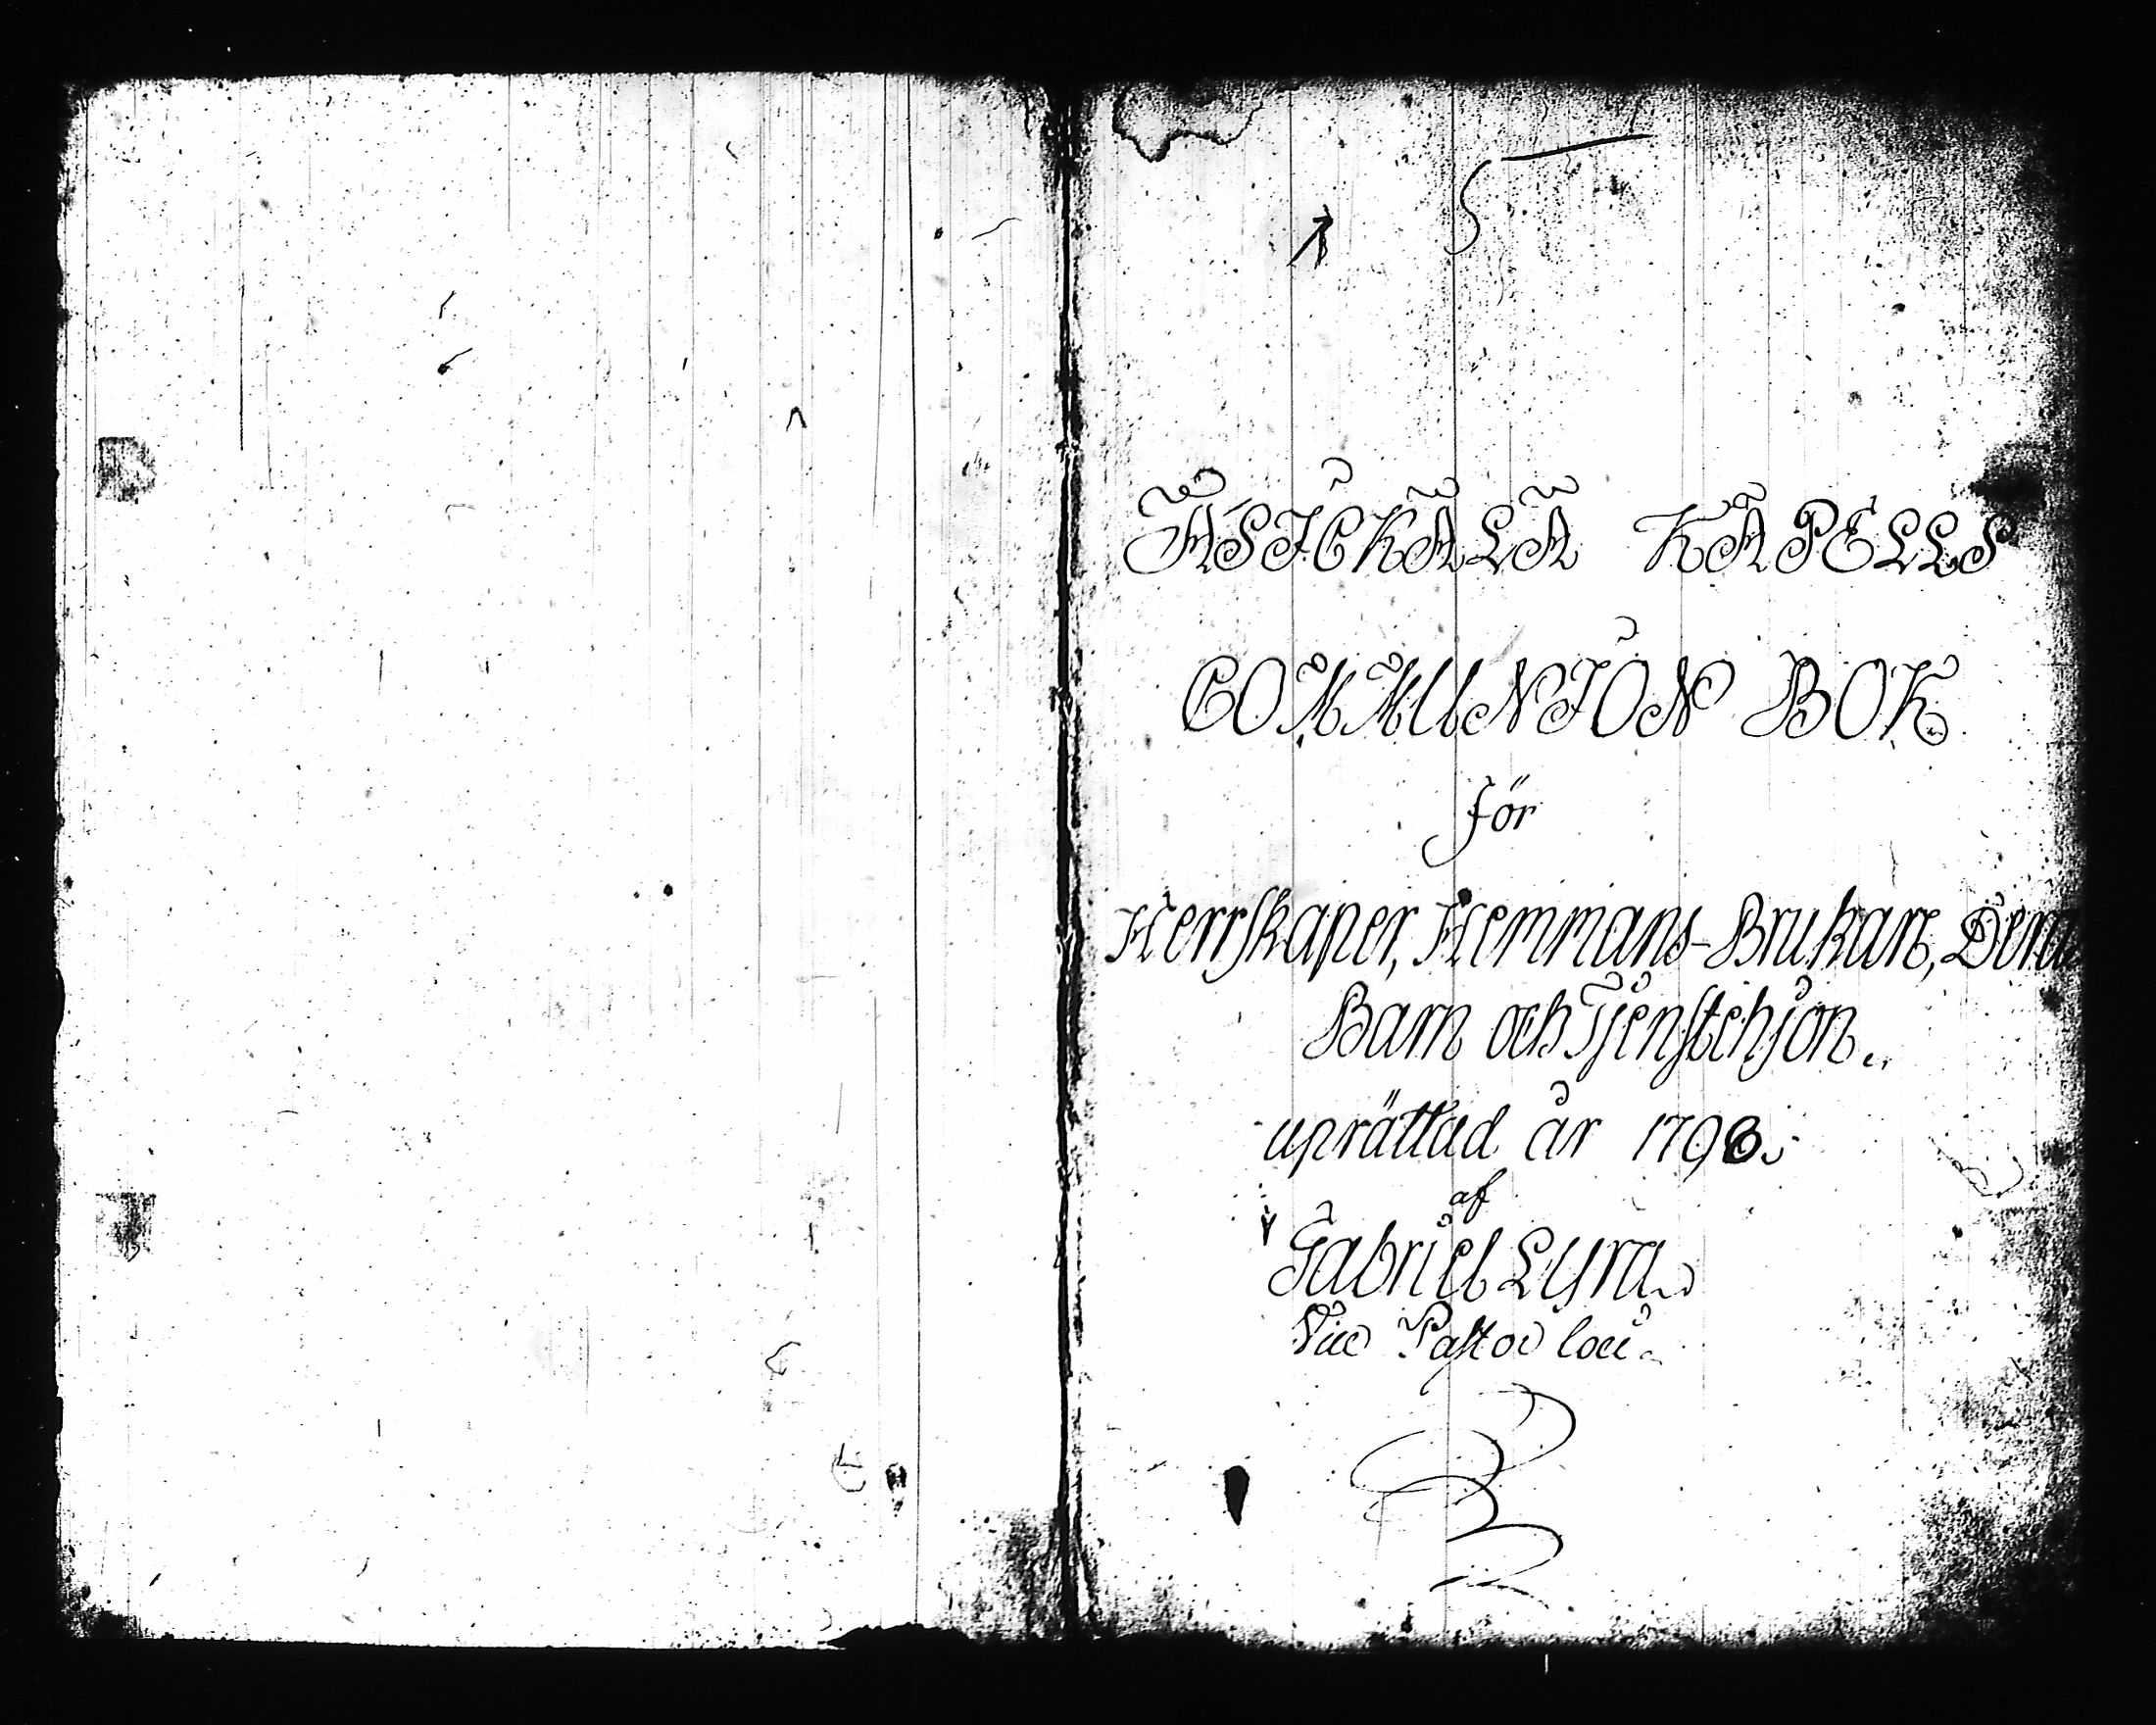 5
ASICKALA KAPELLS
COMMUNION BOK
för
Herrskaper, Hemmans-Brukare, Deras
Barn och Tjenstehjon.
uprättad år 1793.
af
Gabriel Lyra
Vice Pastor loci